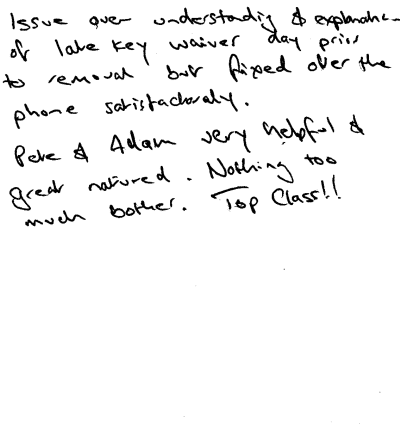 Issue over understanding & explanation
of late key waiver day prior
to removal but fixed over the
phone satisfactoraly.
Pete & Adam very helpful &
great natured. Nothing too
much bother. Top Class!!